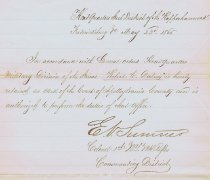 Headquarters Sub District of the Rappahannock
Fredericksburg Va May 23rd 1865
In accordance with orders Headquarters
Military Division of the James
retained as clerk of the Court of Spotsylvania County and is
authorized to perform the duties of that office.
E V Sumner
Colonel 1st
Commanding District